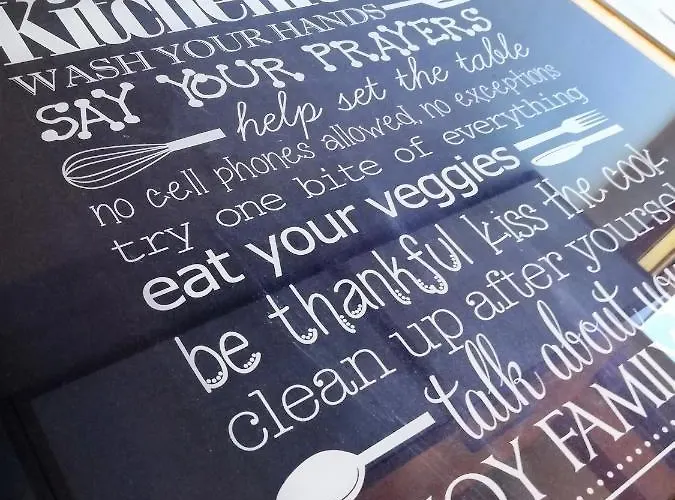 Kitchen
WASH YOUR HANDS
SAY YOUR PRAYERS
help set the table
no cell phones allowed, no exceptions
try one bite of everything
eat your veggies
be thankful kiss the cook
clean up after yourself
talk about
FAMI